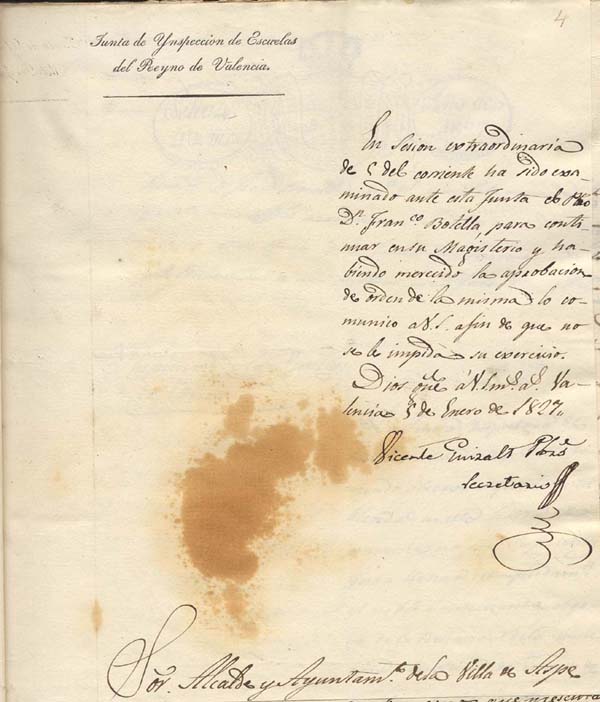 4
Junta de Ynspeccion de Escuelas
del Reyno de Valencia.
En sesion extraordinaria
de 5 del corriente ha sido exa-
minado ante esta Junta el
Dn. Franco. Botella, para conti
nuar en su Magisterio y ha-
biendo merecido la aprobacion
de orden de la misma lo co-
munico a V.S. afin de que no
se le impida su exercicio.
Dios gue. á V.S. ms. as. Va-
lencia 5 de Enero de 1827.
Vicente Guizalt Pbro.
Secretario
Sor. Alcalde y Ayuntamto. de la Villa de Aspe